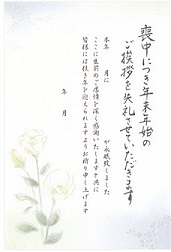 喪中につき年末年始の
ご挨拶を失礼させていただきます
本年　月に
が永眠致しました
ここに生前のご厚情を深く感謝いたしますと共に
皆様には佳き年を迎えられますようお祈り申し上げます
年　月